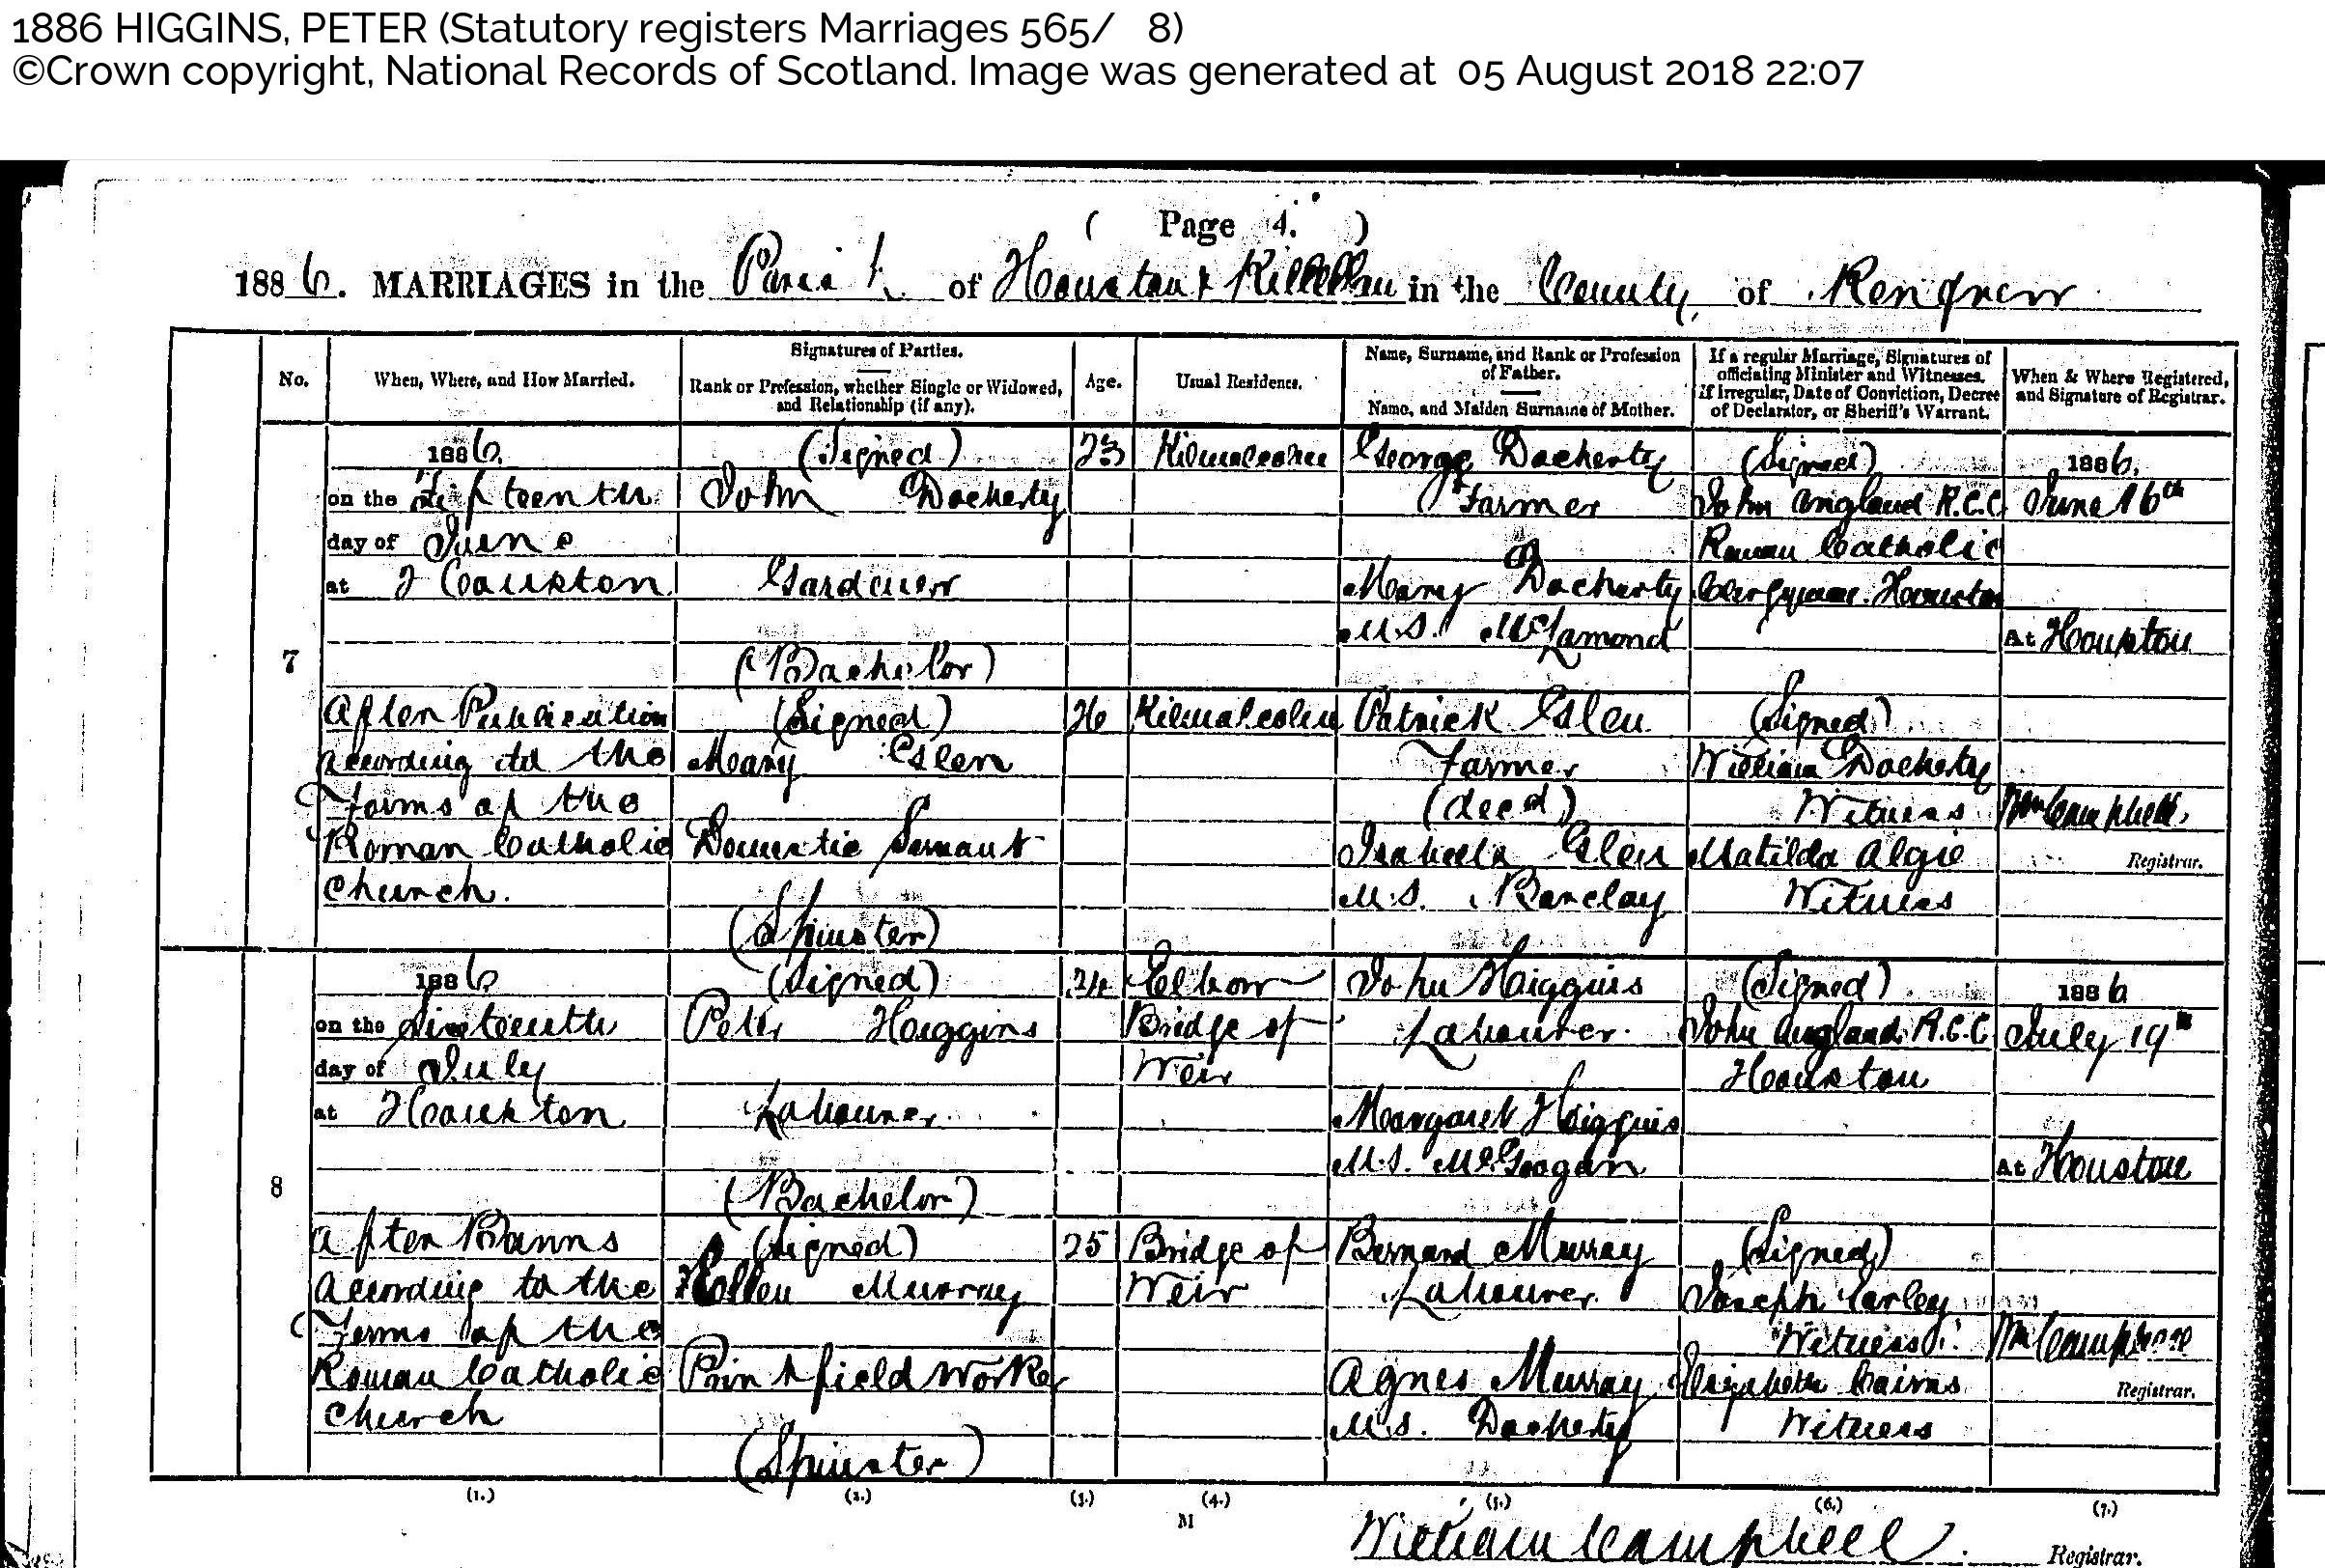 1886 HIGGINS, PETER (Statutory registers Marriages 565/ 8)
©Crown copyright, National Records of Scotland. Image was generated at 05 August 2018 22:07
( Page 4. )
1886. MARRIAGES in the Parish of Houston & Killellan in the County of Renfrew
No.
When, Where, and How Married.
Signatures of Parties.
Rank or Profession, whether Single or Widowed,
and Relationship (if any).
Age.
Usual Residence.
Name, Surname, and Rank or Profession
of Father.
Name, and Maiden Surname of Mother.
If a regular Marriage, Signatures of
officiating Minister and Witnesses.
If Irregular, Date of Conviction, Decree
of Declarator, or Sheriff's Warrant.
When & Where Registered,
and Signature of Registrar.
7
1886.
on the Fifteenth
day of June
at Houston
After Publication
according to the
Forms of the
Roman Catholic
Church.
(Signed)
John Docherty
Gardener
(Bachelor)
(Signed)
Mary Glen
Domestic Servant
(Spinster)
23
26
Kilmalcolm
Kilmalcolm
George Docherty
Farmer
Mary Docherty
M.S. McLamond
Patrick Glen
Farmer
(decd)
Isabella Glen
M.S. Barclay
(Signed)
John England R.C.C.
Roman Catholic
Clergyman. Houston
(Signed)
William Docherty
Witness
Matilda Algie
Witness
1886.
June 16th
At Houston
Wm Campbell
Registrar.
8
1886
on the Sixteenth
day of July
at Houston
After Banns
according to the
Forms of the
Roman Catholic
Church
(Signed)
Peter Higgins
Labourer
(Bachelor)
(Signed)
Hellen Murray
Printfield Worker
(Spinster)
24
25
Elbow
Bridge of
Weir
Bridge of
Weir
John Higgins
Labourer.
Margaret Higgins
M.S. McGeogan
Bernard Murray
Labourer
Agnes Murray
M.S. Docherty
(Signed)
John England R.C.C.
Houston
(Signed)
Joseph
Witness
Elizabeth Cairns
Witness
1886
July 19th
At Houston
Wm Campbell
Registrar.
(1.) (2.) (3.) (4.) (5.) (6.) (7.)
M
William Campbell. Registrar.